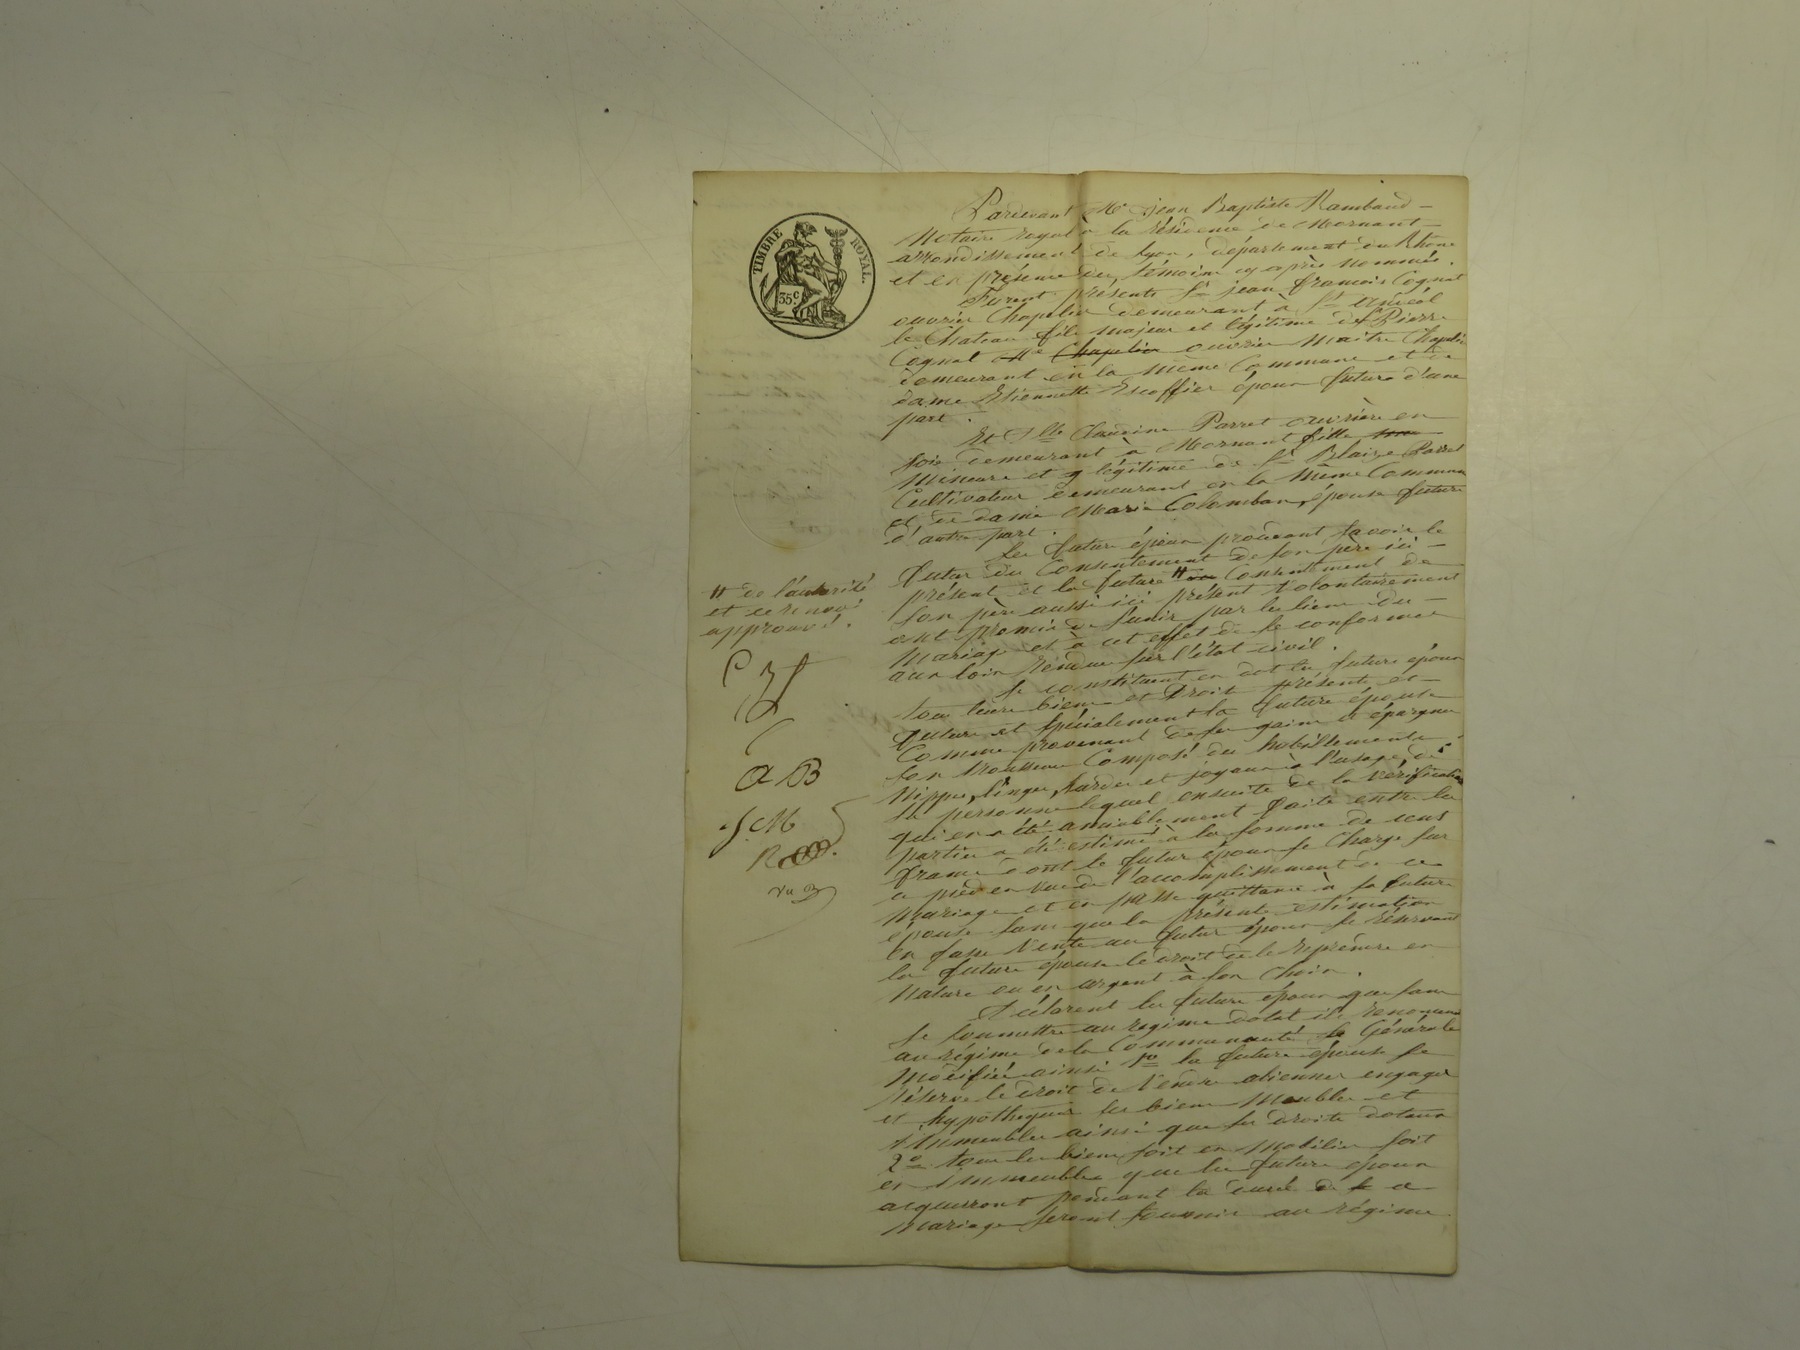 TIMBRE ROYAL.
35c
Pardevant Me jean Baptiste Rambaud
Notaire royal à la résidence de Mornant
arrondissement de Lyon, département du Rhône
et en présence des témoins cy après nommés.
Furent présents Sr jean francois Cognat
ouvrier Chapelier demeurant à St andeol
le Chateau fils majeur et légitime de Sr Pierre
Cognat Me Chapelier ouvrier Maitre Chapelier
demeurant en la même Commune et de
dame Etiennette Escoffier époux futurs d'une
part.
Et Dlle Claudine Parret ouvrière en
soie demeurant à Mornant fille
mineure et légitime de Sr Blaize Parret
Cultivateur demeurant en la même Commune
et de dame Marie Colomban, épouse future
d'autre part.
Les futurs époux procédant savoir le
futur du Consentement de son père ici
présent et la future # Consentement de
son père aussi ici présent Volontairement
ont promis de s'unir par les liens du
Mariage et à cet effet de se conformer
aux loix rendues sur l'état civil.
Se constituent en dot les futurs époux
tous leurs biens et Droits présents et
futurs et spécialement la future épouse
Comme provenant de ses gains et épargnes
son trousseau Composé des habillements
Nippes, linges, hardes et joyaux à l'usage de
sa personne lequel ensuite de la Vérification
qui en a été amiablement faite entre les
parties a été estimé à la somme de cent
francs dont le futur époux se Charge sur
ses pieds en vue de l'accomplissement de ce
Mariage et en passe quittance à sa future
épouse sans que la présente estimation
en fasse Vente au futur époux se réservant
la future épouse le droit de le reprendre en
Nature ou en argent à son Choix.
Déclarent les futurs époux que sans
se soumettre au régime dotal ils renoncent
au régime de la Communauté Générale
Modifiée ainsi 1o la future épouse se
réserve le droit de Vendre aliener engager
et hypothequer ses biens Meubles et
immeubles ainsi que ses droits dotaux
2o tous les biens soit en Mobilier soit
en immeubles que les futurs époux
acquerront pendant la durée de ce
Mariage seront soumis au régime
# de l'autorité
et ce renvoi
approuvé.
C P
a B
J. M
R